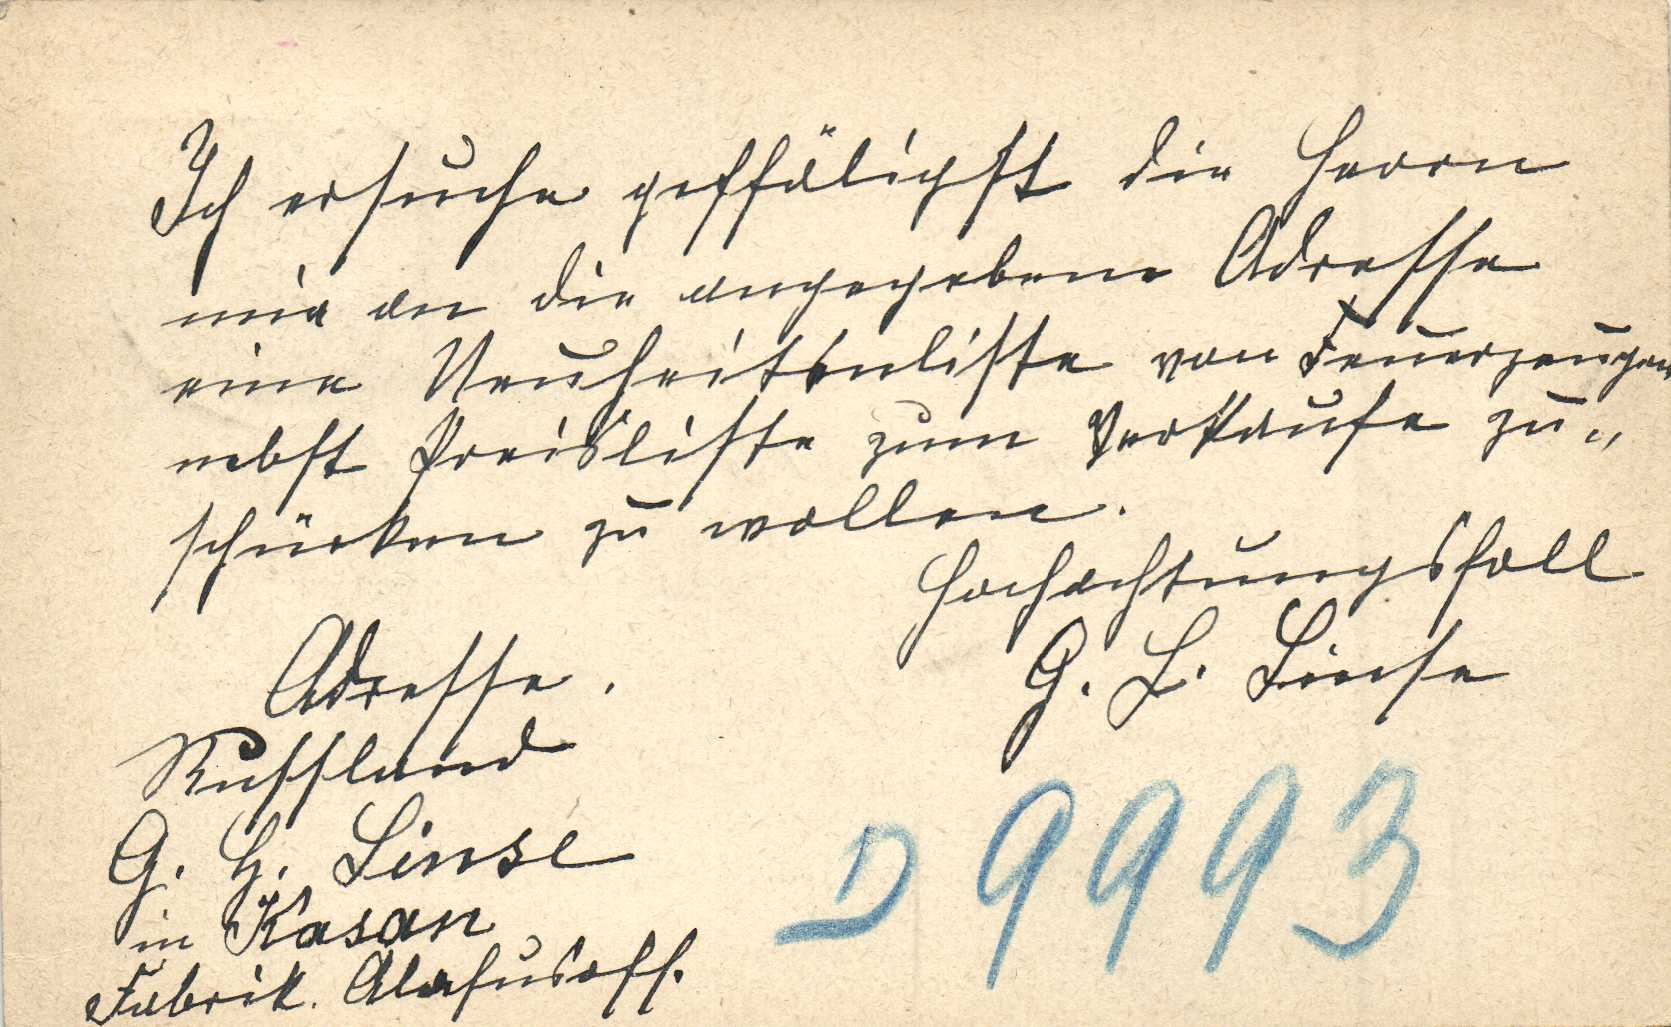 Ich ersuche geffäligst die Herrn
mir an die angegebene Adresse
eine Neuheitenliste von Feuerzeugen
nebst Preisliste zum Verkaufe zu„
schücken zu wollen.
Hochachtungsfoll
G. L. Linse
Adresse.
Russland
G. H. Linse
in Kasan
Fabrik. Alafusoff.
D 9993